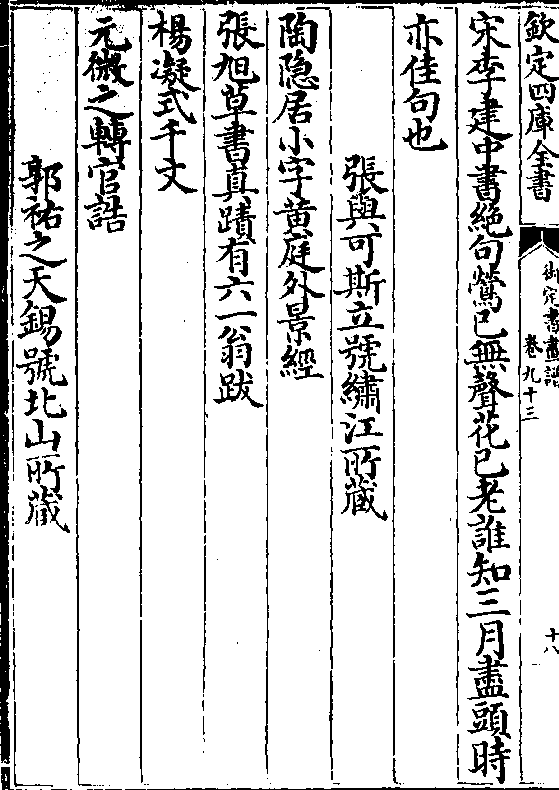 欽定四庫全書
御定書畫譜
卷九十三
十八
宋李建中書絶句鶯已無聲花已老誰知三月盡頭時
亦佳句也
張與可斯立號繡江所藏
陶隐居小字黄庭外景經
張旭草書真蹟有六一翁跋
楊凝式千文
元微之轉官誥
郭祐之天錫號北山所藏